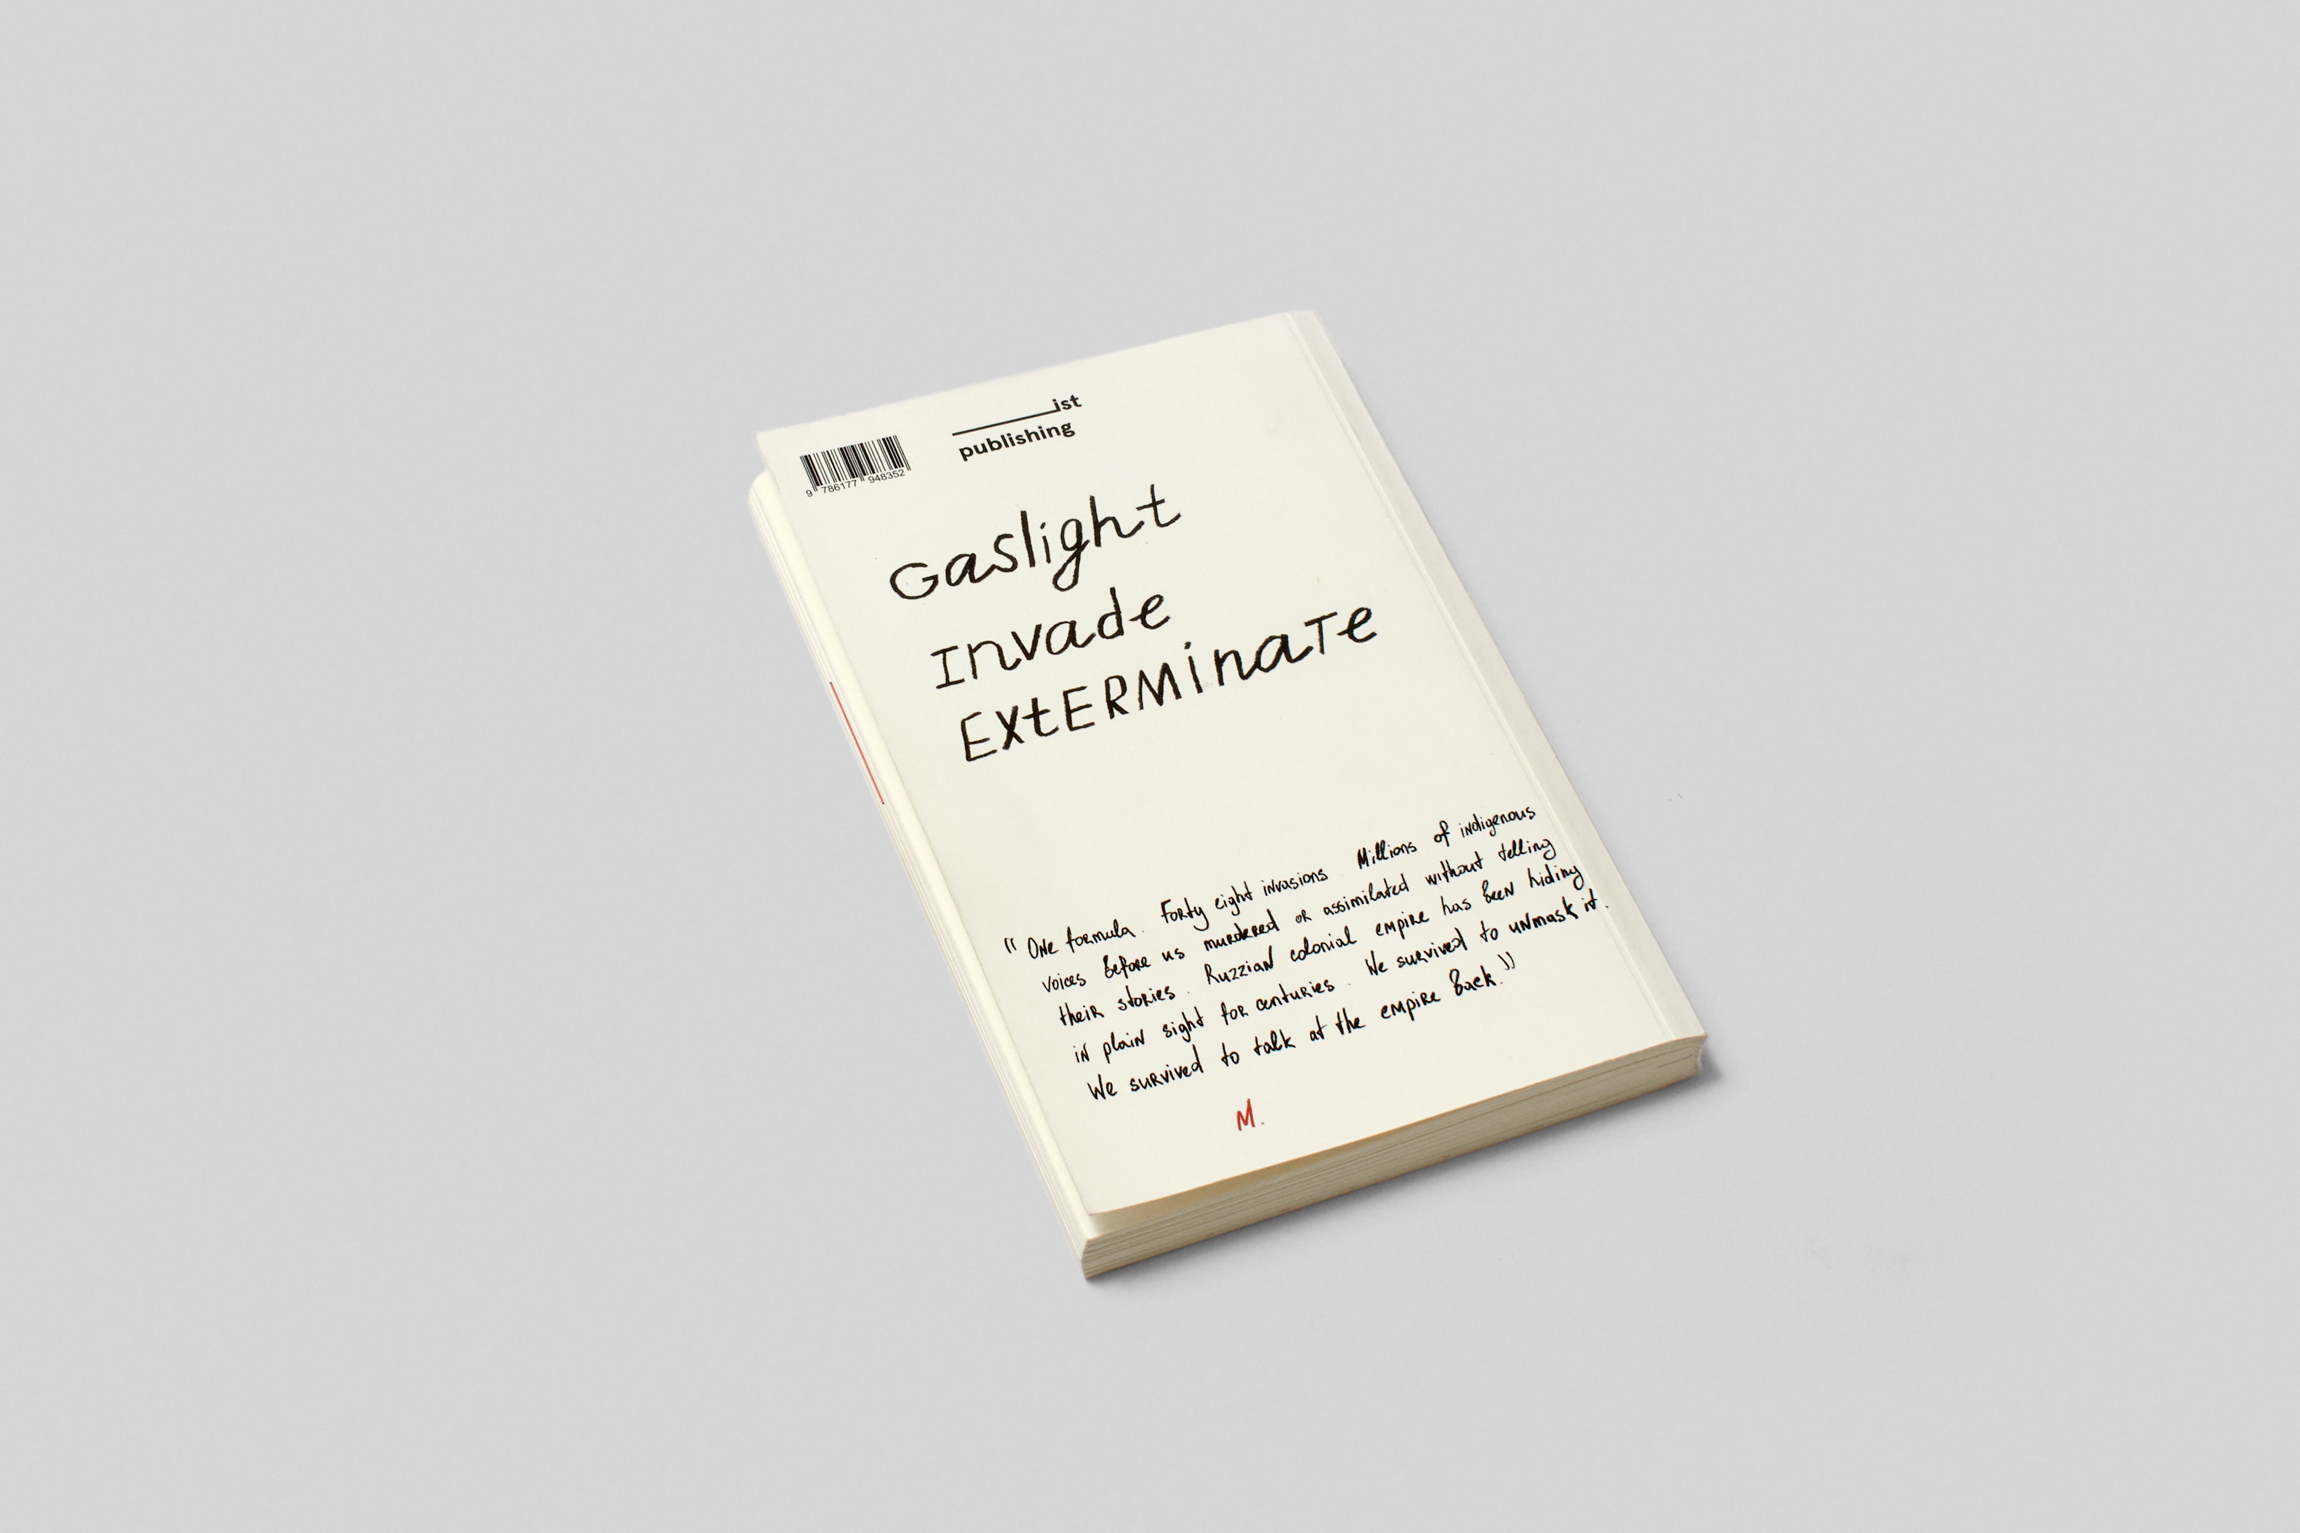 ist
publishing
9 786177 948352
Gaslight
Invade
EXtERMinaTe
"One formula. Forty eight invasions. Millions of indigenous
voices before us murdered or assimilated without telling
their stories. Ruzzian colonial empire has been hiding
in plain sight for centuries. We survived to unmask it.
We survived to talk at the empire back."
M.